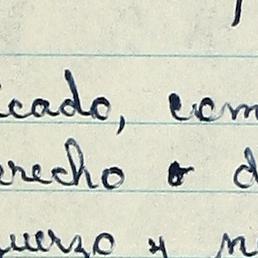 icado, com
erecho o d
querzo y n